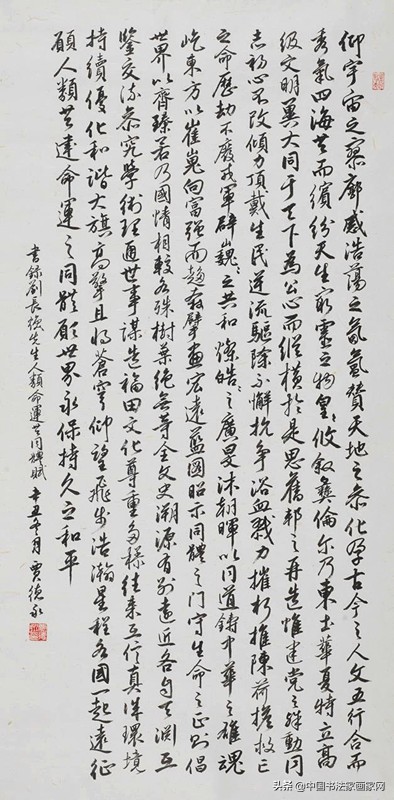 仰宇宙之寥廓感浩荡之氤氲赞天地之恭化孕古今之人文五行合而
秀气四海共而缤纷天生穷灵立物皇攸叙彝伦尔乃东土华夏特立高
级文明冀大同于天下为公心而纵横于是思旧邦之再造惟建党之殊勋同
志初心不改倾力顶戴生民逆流驱除不懈抗争浴血戮力摧朽推陈荷担救亡
之命历劫不废我军辟巍巍之共和灿皓皓之广旻沐朝晖以同道铸中华之雄魂
屹东方以崔嵬向富强而趋奔擘画宏远蓝图昭示同体之门守生命之正则倡
世界以齐臻若乃国情相较各殊树叶绝无等全文史溯源有别远近各自天渊互
鉴交流恭究学术理通世事谋造福田文化尊重多样往来互信真详环境
持续优化和谐大旗高擎且将苍穹仰望飞步浩瀚星程各国一起远征
愿人类共建命运之同体愿世界永保持久之和平
书录刘长强先生人类命运共同体赋 辛丑 月 贾德永
头条@中国书法家画家网